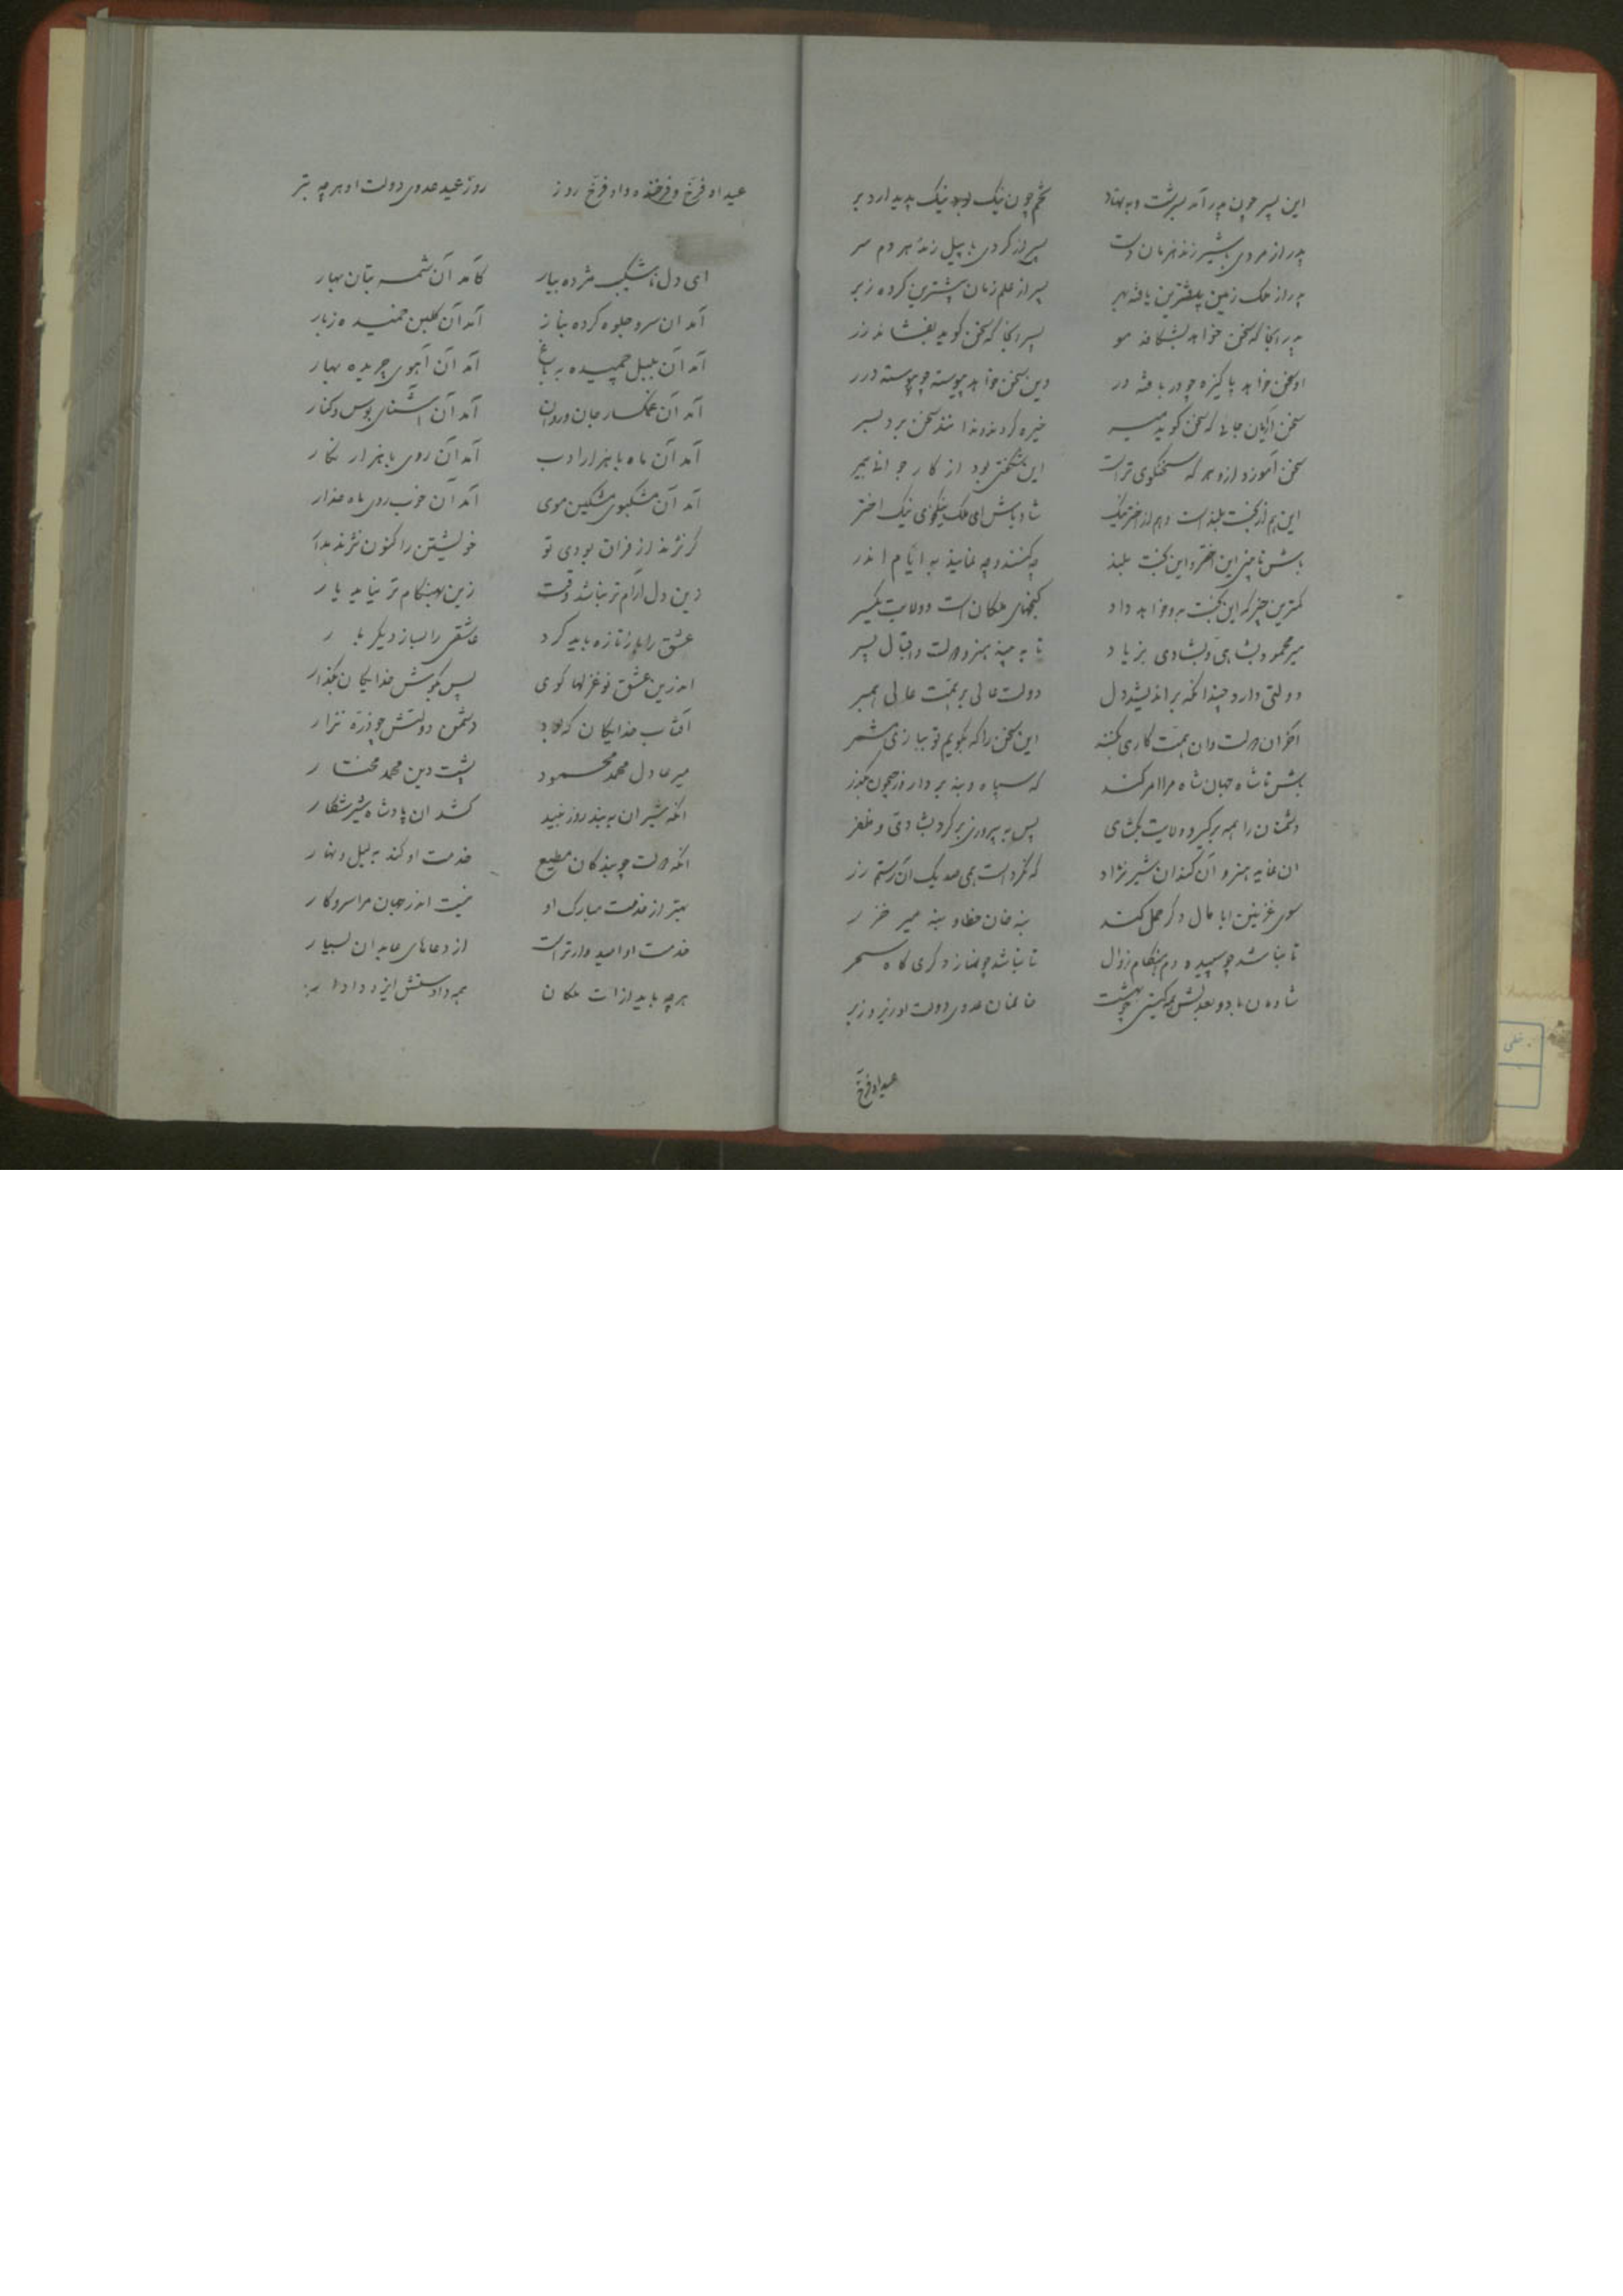 این پسر چون پدر آمد بسرشت و به نهاد تخم چون نیک بود نیک پدید آرد بر
پدر از مردی شیر زند هر مان دست پسر از کردی با پیل زند هر دم سر
پدر از ملک زمین بیشترین یافته بهر پسر از علم زمان بیشترین کرده زبر
پدر آنجا که سخن خواهد بشکافد مو پسر آنجا که سخن گوید بفشاند زر
او سخن خواهد پاکیزه چو دریافته در وین سخن خواهد پیوسته چو پیوسته درر
سخن آرایان جائی که سخن گوید میر خیره گردند و ندانند سخن برد بسر
سخن آموزد ازو هر که سخنگوی تراست این شگفتی بود از کار جوانی بمیر
این هم از بخت بلند است و هم از اختر نیک شاد باش ای ملک نیکخوی نیک اختر
باش تا بینی این اختر و این بخت بلند چه کنند و چه نمایند به ایام اندر
کمترین چیز که این بخت بدو خواهد داد گنجهای ملکان است و ولایت یکسر
میر محمود بشاهی و بشادی بزیاد تا به بیند هنر و دولت و اقبال پسر
دولتی دارد چندانکه براندیشد دل دولت عالی بر همت عالی همبر
اگر آن دولت و آن همت کاری بکنند این سخن را که بگویم تو ببازی مشمر
باش تا شاه جهان شاه مرا امر کند که سپاه و بنه بردار و ز جیحون بگذر
دشمنان را همه برگیر و ولایت بگشای پس به پیروزی برگرد بشادی و ظفر
آن نماید هنر و آن کند آن شیر نژاد که نکرده است همی صد یک آن رستم زر
سوی غزنین با مال و گر حمل کند بنه خان خطا و بنه میر خزر
تا نباشد چو سپیده دم هنگام زوال تا نباشد چو نماز دگری گاه سحر
شادمان باد و بعدلش همه گیتی چو بهشت خانمان عدوی دولت او زیر و زبر
عید او فرخ
عید او فرخ و فرخنده و او فرخ روز روز عید عدوی دولت او هر چه بتر
ای دل ناشکیب مژده بیار کامد آن شمسه بتان بهار
آمد آن سرو جلوه کرده بناز آمد آن گلبن خمیده ز بار
آمد آن بلبل چمیده به باغ آمد آن آهوی چریده بهار
آمد آن غمگسار جان و روان آمد آن آشنای بوس و کنار
آمد آن ماه با هزار ادب آمد آن روی با هزار نگار
آمد آن مشکبوی مشکین موی آمد آن خوب روی ماه عذار
گر نژند از فراق بودی تو خویشتن را کنون نژند مدار
زین دل آرام تر نباشد وقت زین بهنگام تر نیاید یار
عشق را باز تازه باید کرد عاشقی را بساز دیگر بار
اندرین عشق نو غزلها گوی پس بگوش خدایگان بگذار
آفتاب خدایگان که بود دشمن دولتش چو ذره نزار
میر عادل محمد محمود پشت دین محمد مختار
آنکه شیران به بند روز نبید کشد آن پادشاه شیر شکار
آنکه دولت چو بندگان مطیع خدمت او کند به لیل و نهار
بهتر از خدمت مبارک او نیست اندر جهان مرا سر و کار
خدمت او امیدوارتر است از دعاهای عابدان بسیار
هر چه باید از آلت ملکان همه دادستش ایزد دادار